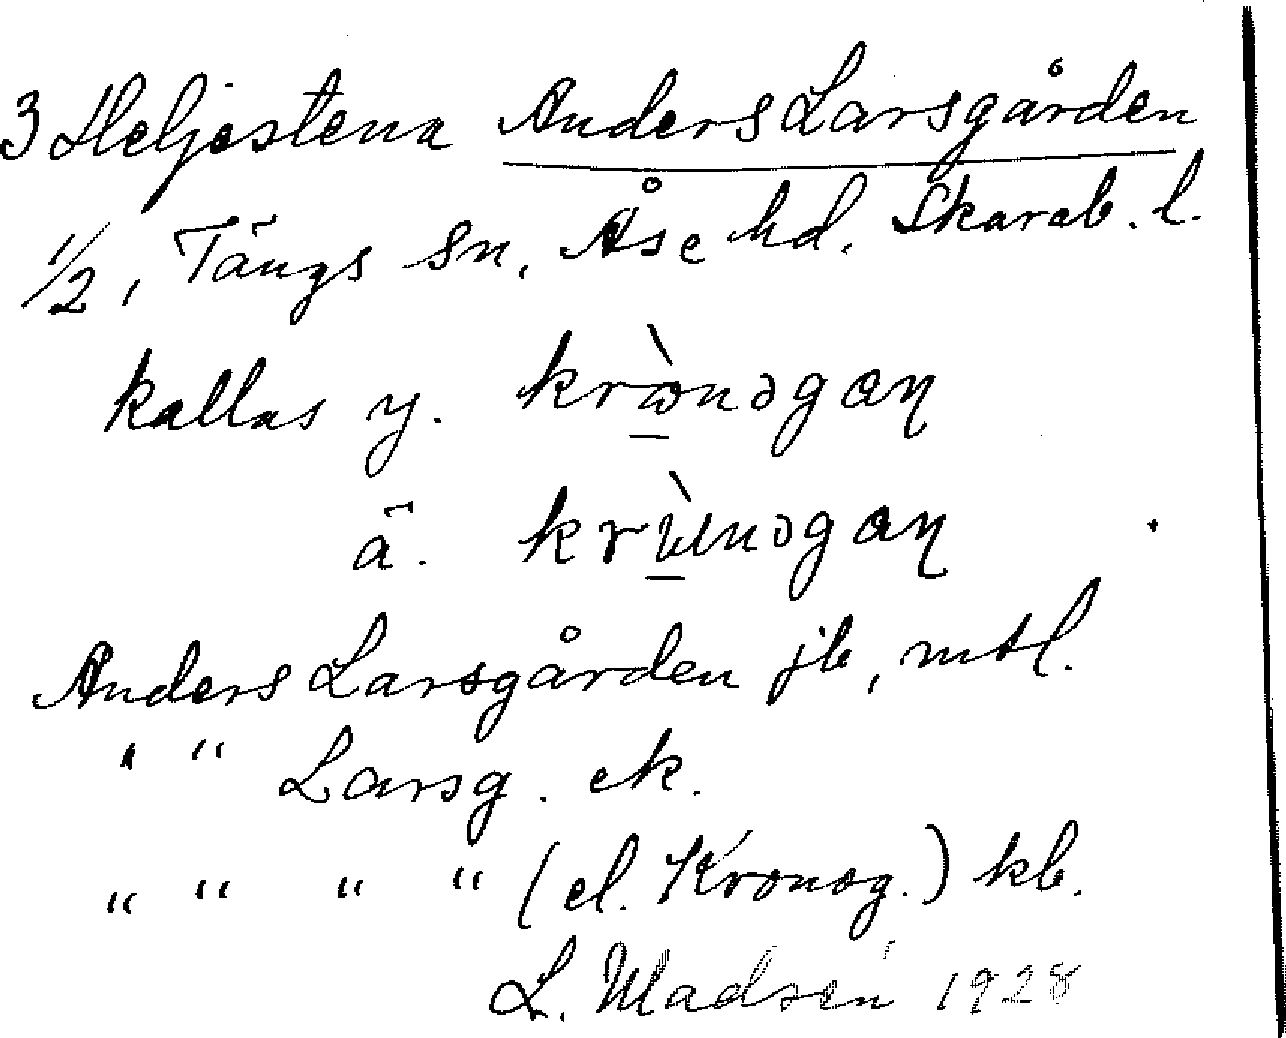 3 Heljestena Anders Larsgården
1/2, Tängs Sn, Åse hd. Skarab. l.
kallas y.
ä.
Anders Larsgården jb, mtl.
" " Larsg. ek.
" " " " (el. Kronog.) kb.
L. Madsén 1928